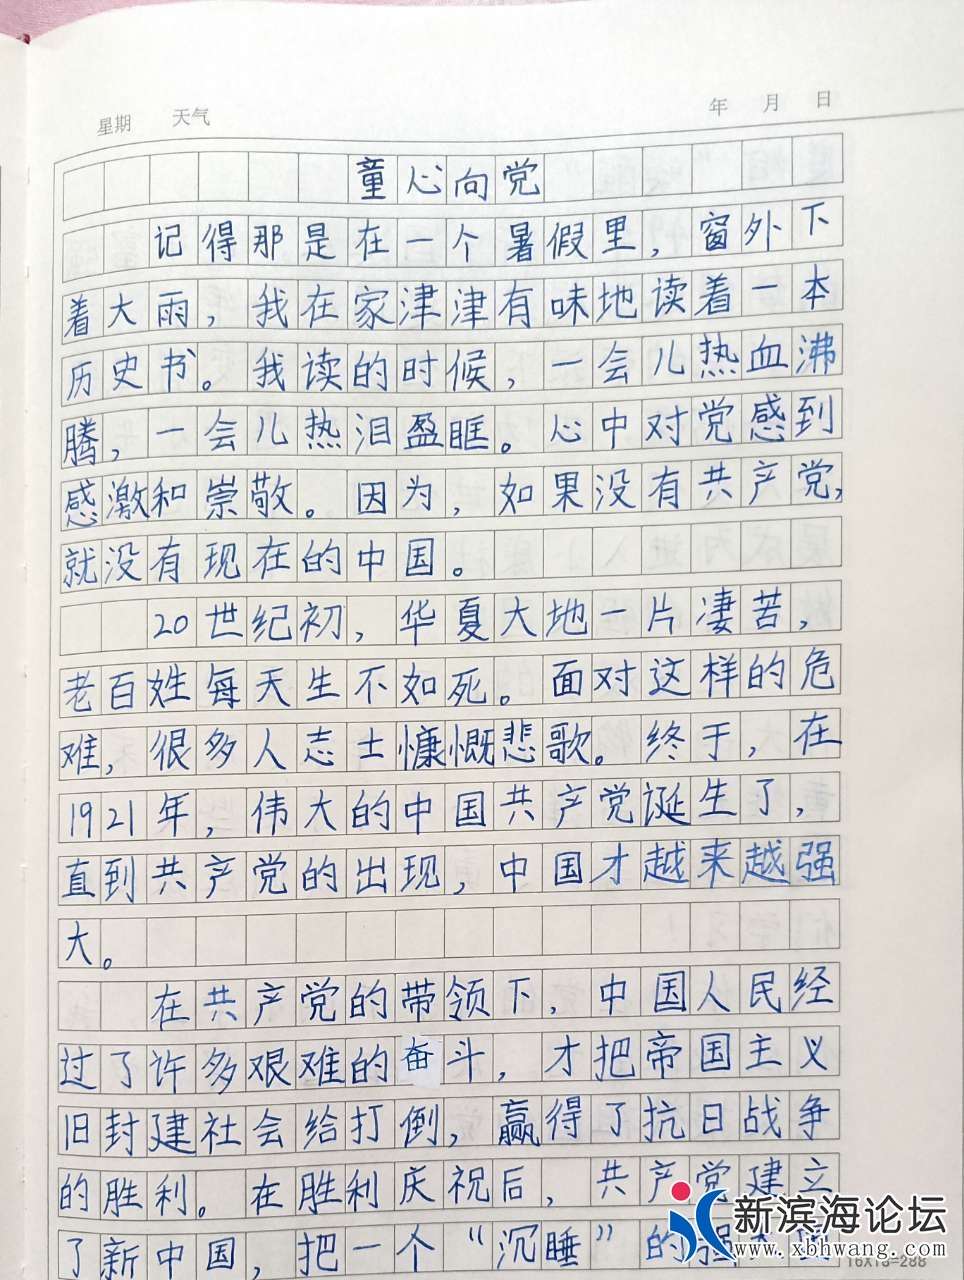 星期 天气 年 月 日
童心向党
记得那是在一个暑假里，窗外下
着大雨，我在家津津有味地读着一本
历史书。我读的时候，一会儿热血沸
腾，一会儿热泪盈眶。心中对党感到
感激和崇敬。因为，如果没有共产党，
就没有现在的中国。
20世纪初，华夏大地一片凄苦，
老百姓每天生不如死。面对这样的危
难，很多人志士慷慨悲歌。终于，在
1921年，伟大的中国共产党诞生了，
直到共产党的出现，中国才越来越强
大。
在共产党的带领下，中国人民经
过了许多艰难的奋斗，才把帝国主义
旧封建社会给打倒，赢得了抗日战争
的胜利。在胜利庆祝后，共产党建立
了新中国，把一个“沉睡”的强大
新滨海论坛
www.xbhwang.com
16X18=288